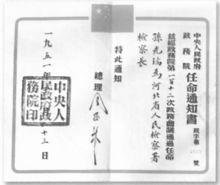 中央人民政府
政務院 任命通知書
政字第 號
茲經政務院第一百十二次政務會議通過任命
孫光瑞為河北省人民檢察署
檢察長
特此通知
總理
一九五一年 月 十三日
中央人
民政府政
務院印